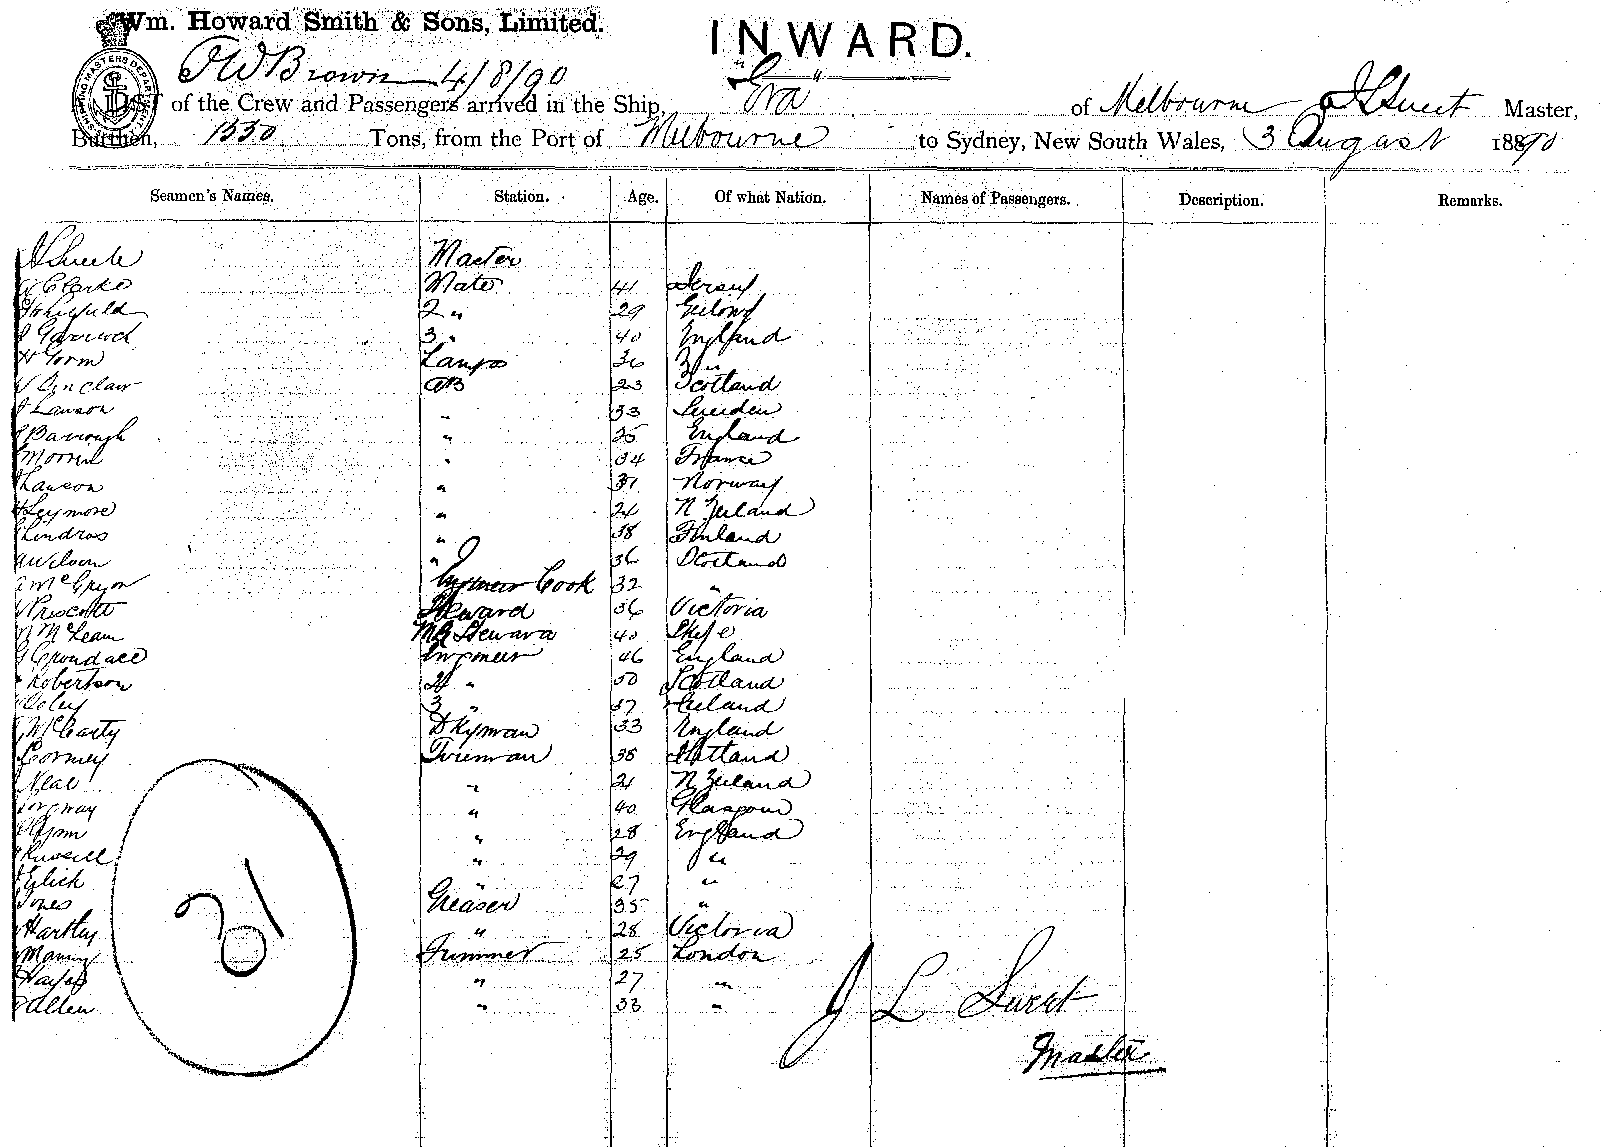 Wm. Howard Smith & Sons, Limited.
INWARD.
T W Brown 4/8/90
LIST of the Crew and Passengers arrived in the Ship, "Era" of Melbourne J L Sweet Master,
Burthen, 1550 Tons, from the Port of Melbourne to Sydney, New South Wales, 3 August 1890
Seamen's Names. Station. Age. Of what Nation. Names of Passengers. Description. Remarks.
Master
Clarke Mate 41 Jersey
2 " 29 Geelong
3 " 40 England
Lamps 36
Sinclair AB 23 Scotland
Lawson " 33 Sweden
Barrough " 25 England
" 34 France
" 37 Norway
Seymore " 24 N Zealand
Lindros " 38 Finland
Wilson " 36 Scotland
McGregor Cook 32 "
Prescott Steward 36 Victoria
McLean Steward 40 Skye
Engineer 46 England
Robertson 2 " 50 Scotland
3 " 37 Ireland
McCarty Dkyman 33 England
Cormey Fireman 38 Scotland
Neal " 21 N Zealand
" 40 Glasgow
" 28 England
Russell " 29 "
" 27 "
Jones Greaser 35 "
Hartley " 28 Victoria
Trimmer 25 London
Hayes " 27 "
Allen " 33 "
31
J L Sweet
Master